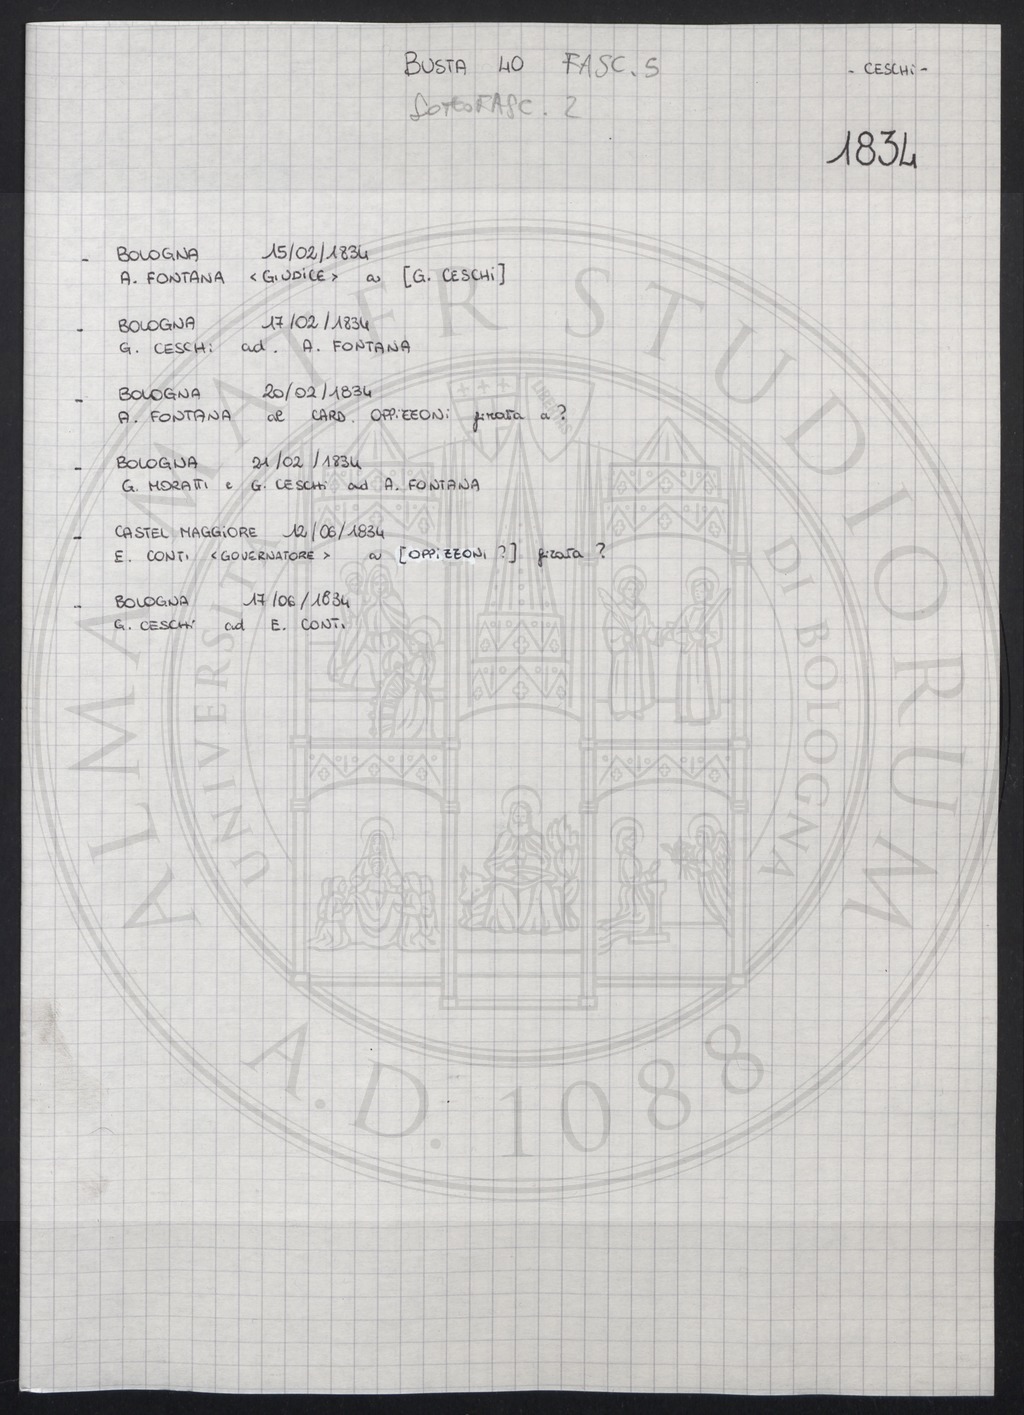 BUSTA 40 FASC. 5
- CESCHi -
SottoFASC. 2
1834
- BOLOGNA 15/02/1834
A. FONTANA <GiUDiCE> a [G. CESCHi]
- BOLOGNA 17/02/1834
G. CESCHi ad. A. FONTANA
- BOLOGNA 20/02/1834
A. FONTANA al CARD. OPPiZZONi girata a ?
- BOLOGNA 21/02/1834
G. MORATTI e G. CESCHi ad A. FONTANA
- CASTEL MAGGiORE 12/06/1834
E. CONTi <GOVERNATORE> a [OPPiZZONi ?] girata ?
- BOLOGNA 17/06/1834
G. CESCHi ad E. CONTi
ALMA MATER STUDIORUM
UNIVERSITÀ DI BOLOGNA
LIBERTAS
A.D. 1088